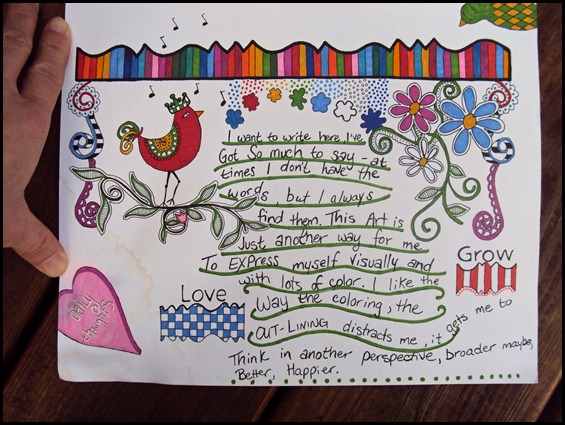 I want to write here I've
Got So much to say - at
times I don't have the
words, but I always
find them. This Art is
Just another way for me
To EXPRESS myself visually and
with lots of color. I like the
Way the coloring, the
OUT-LINING distracts me, it gets me to
Think in another perspective, broader maybe,
Better, Happier.
Love
Grow
Daily
thoughts